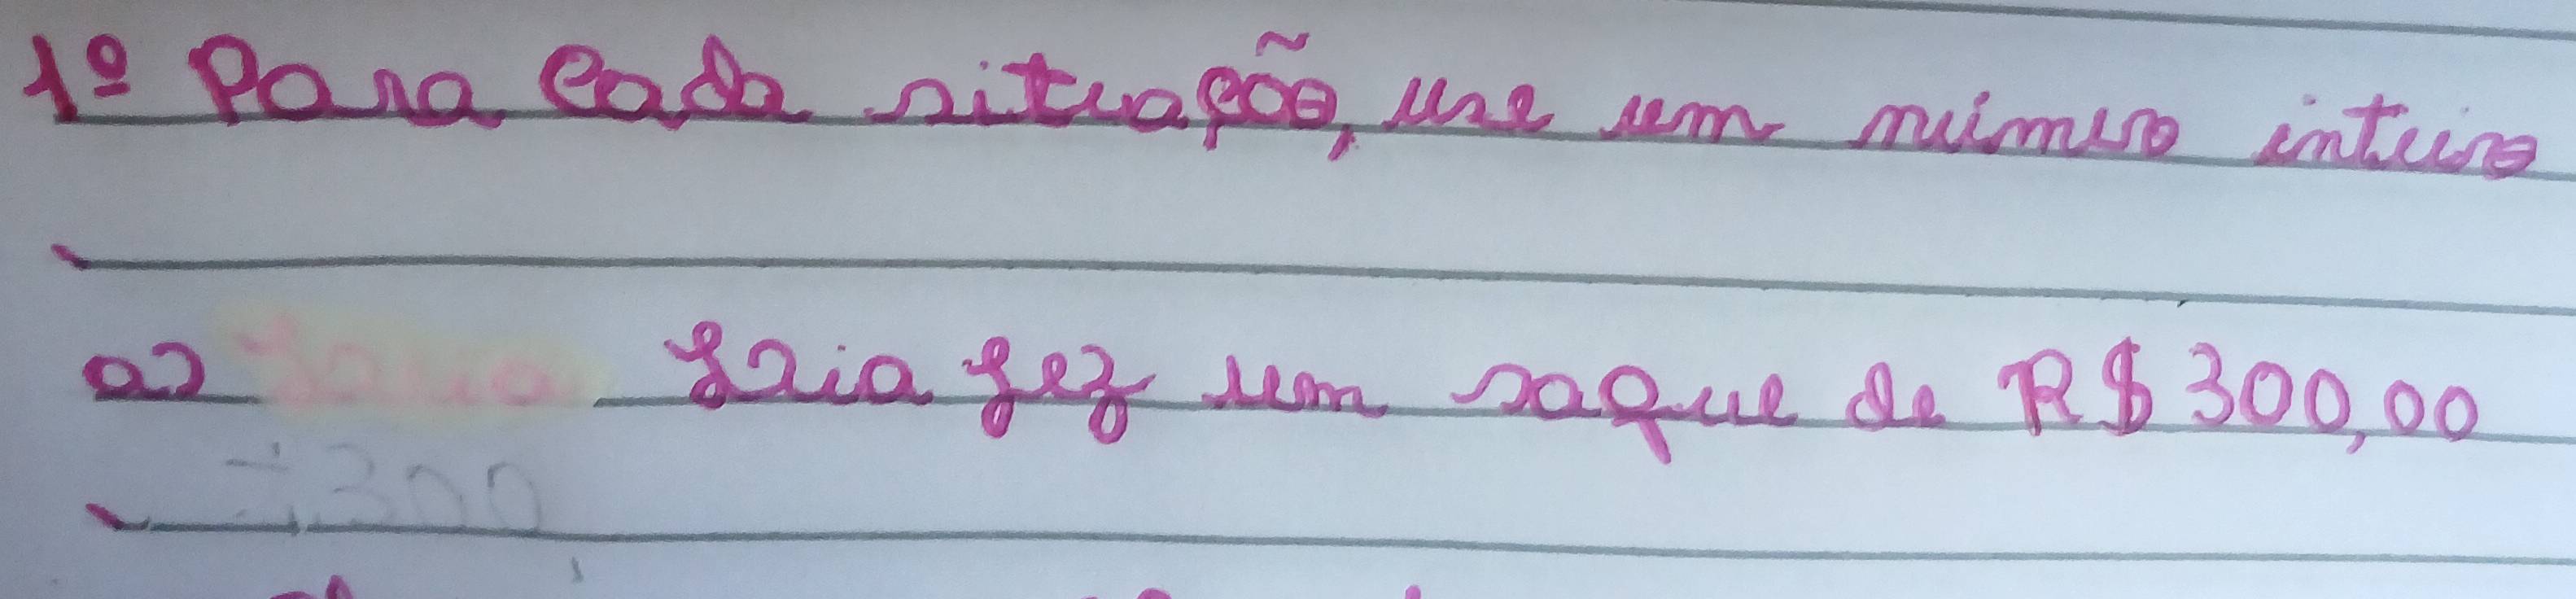 1º Para cada situação, use um número inteiro
a) Lzia fez um saque de R$ 300,00
-300